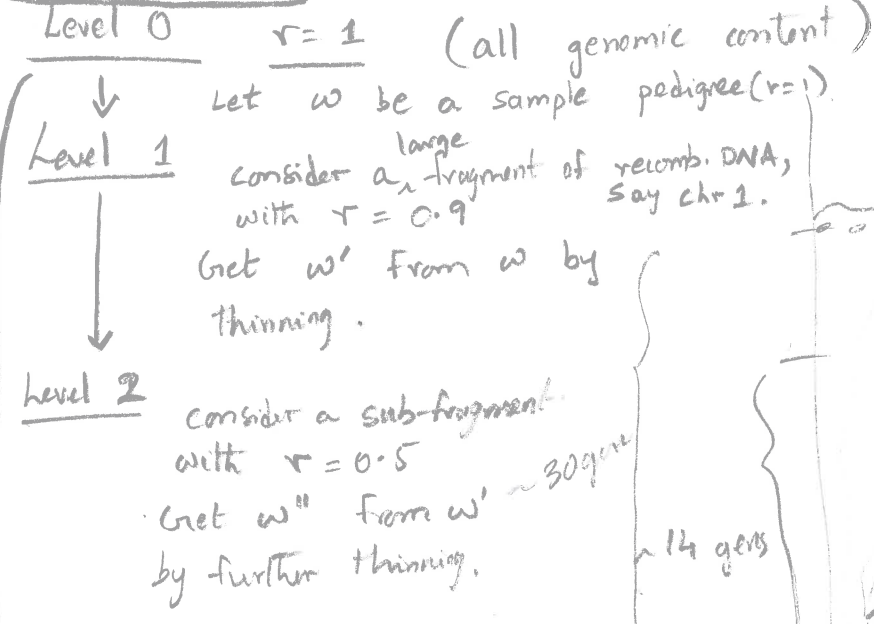 Level 0 r = 1 (all genomic content)
Let ω be a sample pedigree (r=1).
Level 1
large
consider a ‸ fragment of recomb. DNA,
with r = 0.9 say chr 1.
Get ω' from ω by
thinning.
Level 2
consider a sub-fragment
with r = 0.5
~30 gens
Get ω'' from ω'
~14 gens
by further thinning.